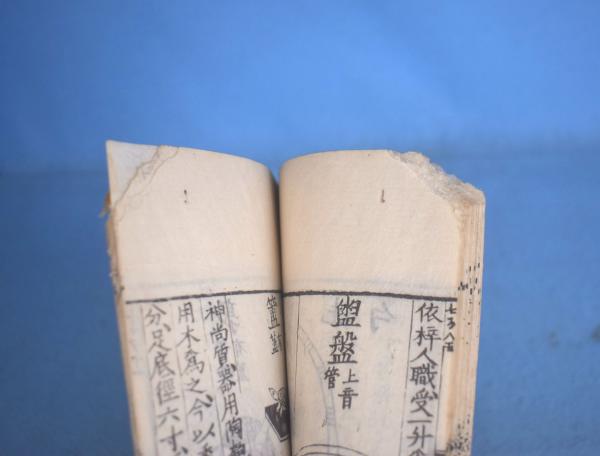 依梓人職受一升
盥盤上音管
神尚質器用陶
用木爲之今以
分足底徑六寸